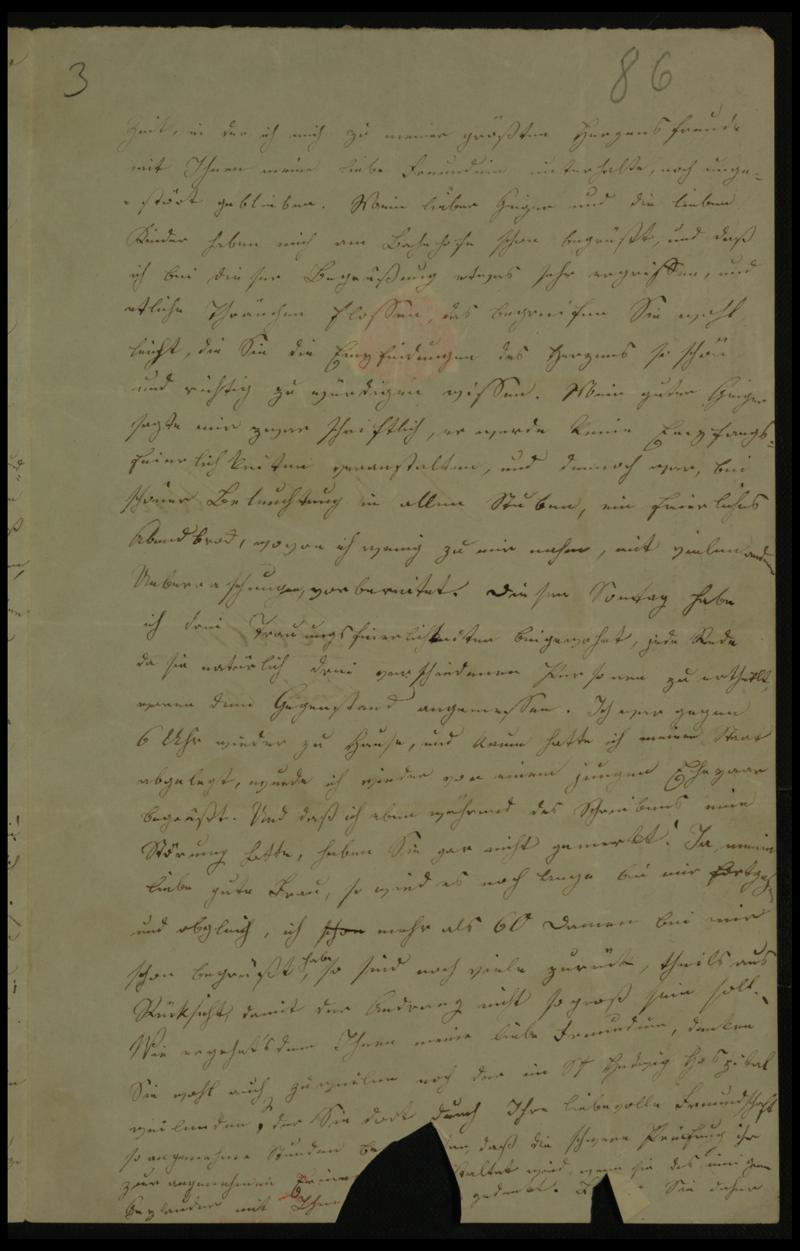 3
86
Zeit, in der ich mich zu meiner größten Herzensfreude
mit Ihnen meine liebe Freundin unterhalte, noch unge=
=stört geblieben. Mein lieber Geiger und die lieben
Kinder haben mich am Bahnhofe schon begrüßt, und daß
ich bei dieser Begrüßung etwas sehr ergriffen, und
etliche Thränchen flossen, das begreifen Sie wohl
leicht, die Sie die Empfindungen des Herzens so schön
und richtig zu würdigen wissen. Mein guter Geiger
sagte mir zwar schriftlich, er werde keine Empfangs=
feierlichkeiten veranstalten, und dennoch war, bei
schöner Beleuchtung in allen Stuben, ein feierliches
Abendbrod, wovon ich wenig zu mir nahm, mit vielen andern
Ueberraschungen, vorbereitet. Diesen Sontag habe
ich drei Trauungsfeierlichkeiten beigewohnt, jede Rede
da sie natürlich drei verschiedenen Personen zu ertheilt,
waren dem Gegenstand angemessen. Ich war gegen
6 Uhr wieder zu Hause, und kaum hatte ich meinen Staat
abgelegt, wurde ich wieder von einem jungen Ehepaar
begrüßt. Und daß ich eben während des Schreibens eine
Störung hatte, haben Sie gar nicht gemerkt! Ja, meine
liebe gute Frau, so wird es noch lange bei mir
und obgleich, ich schon mehr als 60 Damen bei mir
schon begrüßt habe, so sind noch viele zurück, theils aus
Rücksicht, damit der Andrang nicht so groß sein soll.
Wie ergeht's denn Ihnen meine liebe Freundin, denken
Sie wohl auch zuweilen noch der im St Hedwig Hospital
weilenden, der Sie dort durch Ihre liebevolle Freundschaft
so angenehme Stunden daß die schwere Prüfung ihr
zur angenehmen wird, wenn sie des innigen
mit Ihnen gedenkt. Sie daher